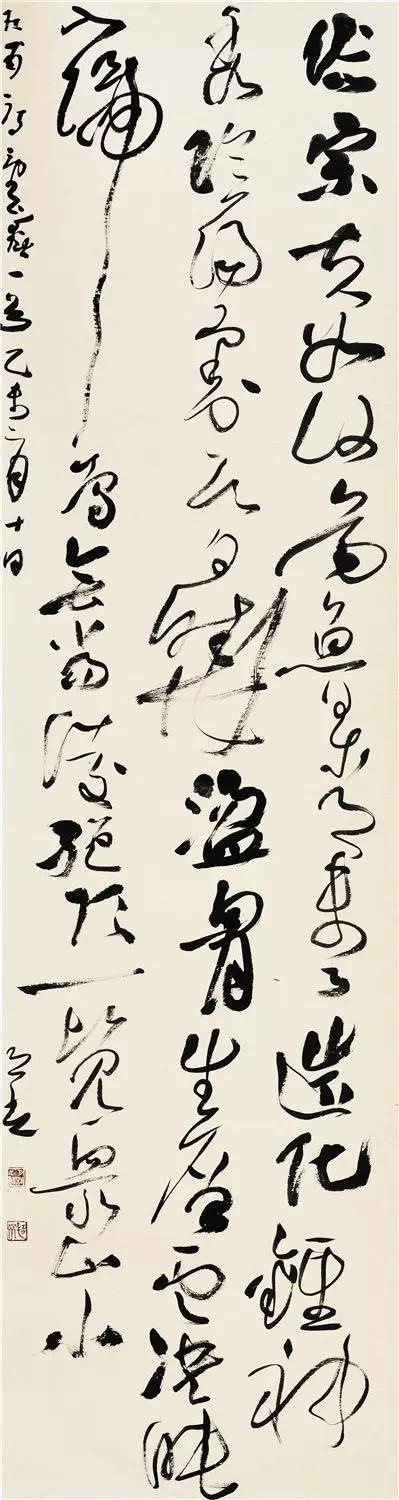 岱宗夫如何齊魯青未了造化鍾神
秀陰陽割昏曉盪胸生層雲決眥
入歸鳥會當凌絕頂一覽衆山小
杜甫詩望嶽一首乙未二月十日